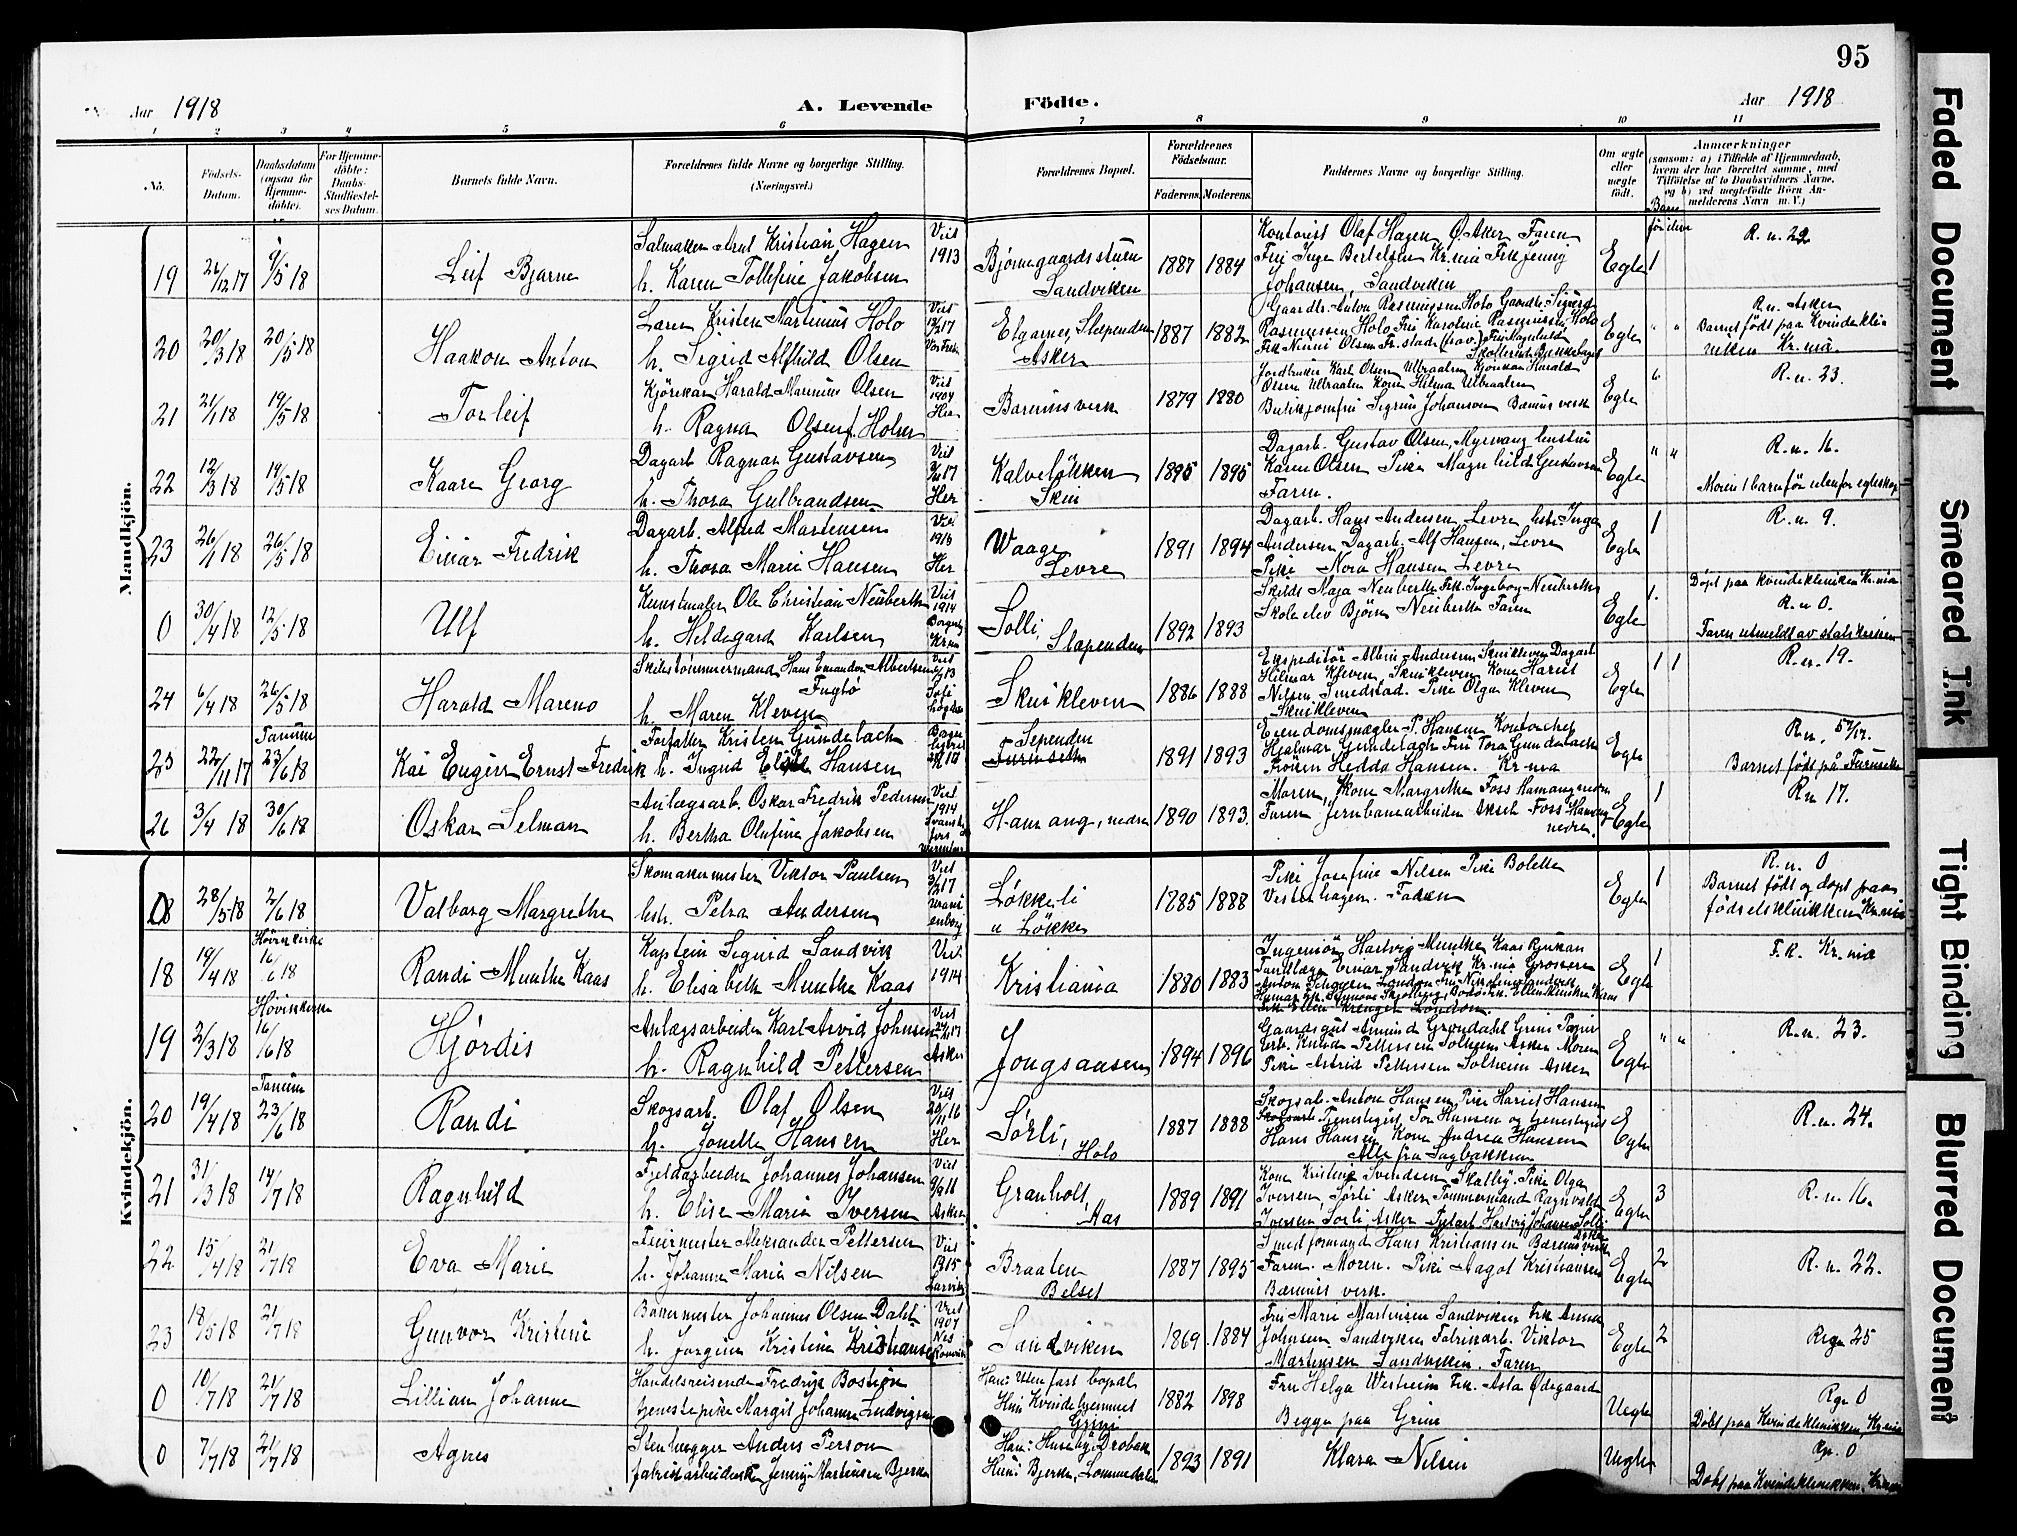 95
Aar 1918
A. Levende
Födte.
Aar 1918
1 2 3 4 5 6 7 8 9 10 11
No.
Födsels-
Datum.
Daabsdatum
(ogsaa for
Hjemme-
döbte).
For Hjemme-
döbte:
Daabs-
Stadfæstel-
ses Datum.
Barnets fulde Navn.
Forældrenes fulde Navne og borgerlige Stilling.
(Næringsvei.)
Forældrenes Bopæl.
Forældrenes
Födselsaar.
Faderens.
Moderens.
Faddernes Navne og borgerlige Stilling.
Om ægte
eller
uægte
født.
Anmærkninger
(saasom: a) i Tilfælde af Hjemmedaab,
hvem der har forrettet samme, med
Tilföielse af to Daabsvidners Navne,
og b) ved uægtefödte Börn An-
melderens Navn m. V.)
Mandkjön.
19 26/12 17 9/5 18
Leif Bjarne
Salmaker Arnt Kristian Hagen
h. Karen Tollefine Jakobsen
Viet
1913
Bjørnegaardssturen
Sandviken
1887 1884
Kontorist Olaf Hagen Ø. Aker Faren
Fru Inga Bertelsen Kr.nia Frk Jenny
Johansen, Sandviken
Egte 1
R. n. 22
20 20/3 18 20/5 18
Haakon Anton
Lærer Kristen Martinius Holo
h. Sigrid Alfhild Olsen
Elgarnes, Slependen
Asker
1887 1882
Gaardbr. Anton Rasmussen Holo Gaardbr. Sigurd
Rasmussen Holo Fru Karoline Rasmussen Holo
Egte " "
R.n. Asker
Barnet født paa Kvindekli-
niken Kr.nia.
21 21/1 18 19/5 18
Torleif
Kjørekar Harald Marinius Olsen
h. Ragna Olsen f. Holser
Viet
1904
Her
Bærumsverk
1879 1880
Jordbruker Karl Olsen Ulbraaten Kjørekar Harald
Olsen Ulbraaten Kone Hilma Ulbraaten
Butikjomfru Sigrun Johansen Bærums verk
Egte
R. n. 23.
22 12/3 18 19/5 18
Kaare Georg
Dagarb Ragnar Gustavsen
h. Thora Gulbrandsen
Her
Kalveløkken
Skui
1895 1895
Dagarb. Gustav Olsen, Myrvang hustru
Karen Olsen Pike Magnhild Gustavsen
Faren.
Egte " "
R. n. 16.
Moren 1 barn før utenfor egteskap
23 26/1 18 26/5 18
Einar Fredrik
Dagarb. Alfred Martensen
h. Thora Marie Hansen
Her
Waage
Levre
1891 1894
Dagarb. Hans Andersen Levre hstr Inga
Andersen Dagarb. Alf Hansen, Levre
Pike Nora Hansen Levre
Egte 1
R. n 9.
0 30/4 18 12/5 18
Ulf
Kunstmaler Ole Christian Neuberth
h. Hildegard Karlsen
Viet
1914
Solli,
Slependen
1892 1893
Skilds Maja Neuberth Frk. Ingeborg Neuberth
Skoleelev Bjørn Neuberth Faren
Egte 1.
Døpt paa Kvindekliniken Kr.nia
R. n 0.
Faren utmeldt av statskirken
24 6/4 18 26/5 18
Harald Mareno
Skibstømmermand Hans Emandor Albertsen
Fuglø
h. Maren Kleven
Skuikleven
1886 1888
Ekspeditør Albin Andersen Skuikleven Dagarb
Hilmar Kleven, Skuikleven Kone Hariet
Nilsen Smedstad. Pike Olga Kleven
Skuikleven
Egte 1 1
R. n. 19.
25 22/11 17 Tanum 23/6 18
Kai Eugen Ernst Fredrik
Forfatter Kristen Gundelach
h. Ingrid Elise Hansen
Slependen
Furuseth
1891 1893
Eiendomsmægler P. Hansen Kontorchef
Hjalmar Gundelach Fru Tora Gundelach
Frøken Hedda Hansen. Kr.nia
Egte
R.n. 57/17.
Barnet født på Furuseth
26 3/4 18 30/6 18
Oskar Selmar
Anlægsarb. Oskar Fredrik Pedersen
h. Bertha Olufine Jakobsen
Viet
1914
Hamang, nedre
1890 1893.
Moren, Kone Margrethe Foss Hamang nedre
Faren Jernbanearbeider Aksel Foss Hamang
nedre.
Egte 1
R n 17.
Kvindekjön.
0 28/5 18 2/6 18
Valborg Margrethe
Skomakermester Viktor Paulsen
hstr. Petra Andersen
Løkkeli
u Løkke
1885 1888
Pike Josefine Nilsen Pike Bolette
Vestenhagen. Faren
Egte 1
R. n. 0
Barnet født og døpt paa
fødselsklinikken Kr.nia
18 19/4 18 Høvik kirke 16/6 18
Randi Munthe Kaas
Kaptein Sigurd Sandvik
h. Elisabeth Munthe Kaas
Viet
1914
Kristiania
1880 1883
Ingeniør Hartvig Munthe Kaas Rjukan
Tandlæge Einar Sandvik Kr.nia Grosserer
Egte 1
F. R. Kr.nia
19 2/3 18 Høvik kirke 16/6 18
Hjördis
Anlægsarbeider Karl Arvid Johnsen
h. Ragnhild Pettersen
Asker
Jongsaasen
1894 1896
Gaardsgut Amund Grøndahl Grini
Moren
Pike Astrid Pettersen Solheim Asker
Egte " "
R. n. 23.
20 19/4 18 Tanum 23/6 18
Randi
Skogsarb. Olaf Olsen
h. Jonette Hansen
Viet
20/11 16
Her
Sørli,
Holo
1887 1888
Skogsarb. Anton Hansen Pike Hariet Hansen
Tjenestegut Tor Hansen og tjenestegut
Hans Hansen Kone Andrea Hansen
Alle fra Sagbakken
Egte
R. n. 24.
21 31/3 18 14/7 18
Ragnhild
Fjeldarbeider Johannes Johansen
h. Elise Marie Iversen
Asker
Granholt,
Aas
1889 1891
Kone Kristine Svendsen Skalby. Pike Olga
Iversen, Sørli Asker Tømmermand Ragnvald
Iversen Sørli, Asker
Egte 3
R. n. 16.
22 15/4 18 21/7 18
Eva Marie
Feiermester Aleksander Pettersen
h. Johanne Marie Nilsen
Viet
1915
Larvik
Braaten
Belset
1887 1895
Smedformand Hans Kristiansen Bærums verk
Faren. Moren. Pike Aagot Kristiansen
Bærums verk.
Egte 2
R. n. 22.
23 18/5 18 21/7 18
Gunvor Kristine
Bakermester Johannes Olsen Dahl
h. Jørgine Kristine Kristiansen
Viet
1907
Nes
Sandviken
1869 1884
Fru Marie Martinsen Sandviken Frk Anna
Johnsen Sandviken Fabrikarb. Viktor
Martensen Sandviken. Faren
Egte 2
R n 25
0 10/7 18 21/7 18
Lillian Johanne
Handelsreisende Fredrik Boström
Tjenestepike Margit Johanne Ludvigsen
Han: Uten fast bopæl
Hun: Kvindehjemmet
Grini
1882 1898
Fru Helga Westheim Frk. Asta Ødegaard
Begge paa Grini
Uegte
R n 0
Døbt paa Kvindeklinikken, Kr.nia
0 7/7 18 21/7 18
Agnes
Stenhugger Anders Person
fabrikarbeiderske Jenny Martinsen Bjerke
Han: Husebg. Drøbak
Hun: Bjerke, Lommedalen
1893 1891
Klara Nilsen
Uegte
R n. 0
Døbt paa Kvindeklinikken, Kr.nia
Faded Document
Smeared Ink
Tight Binding
Blurred Document